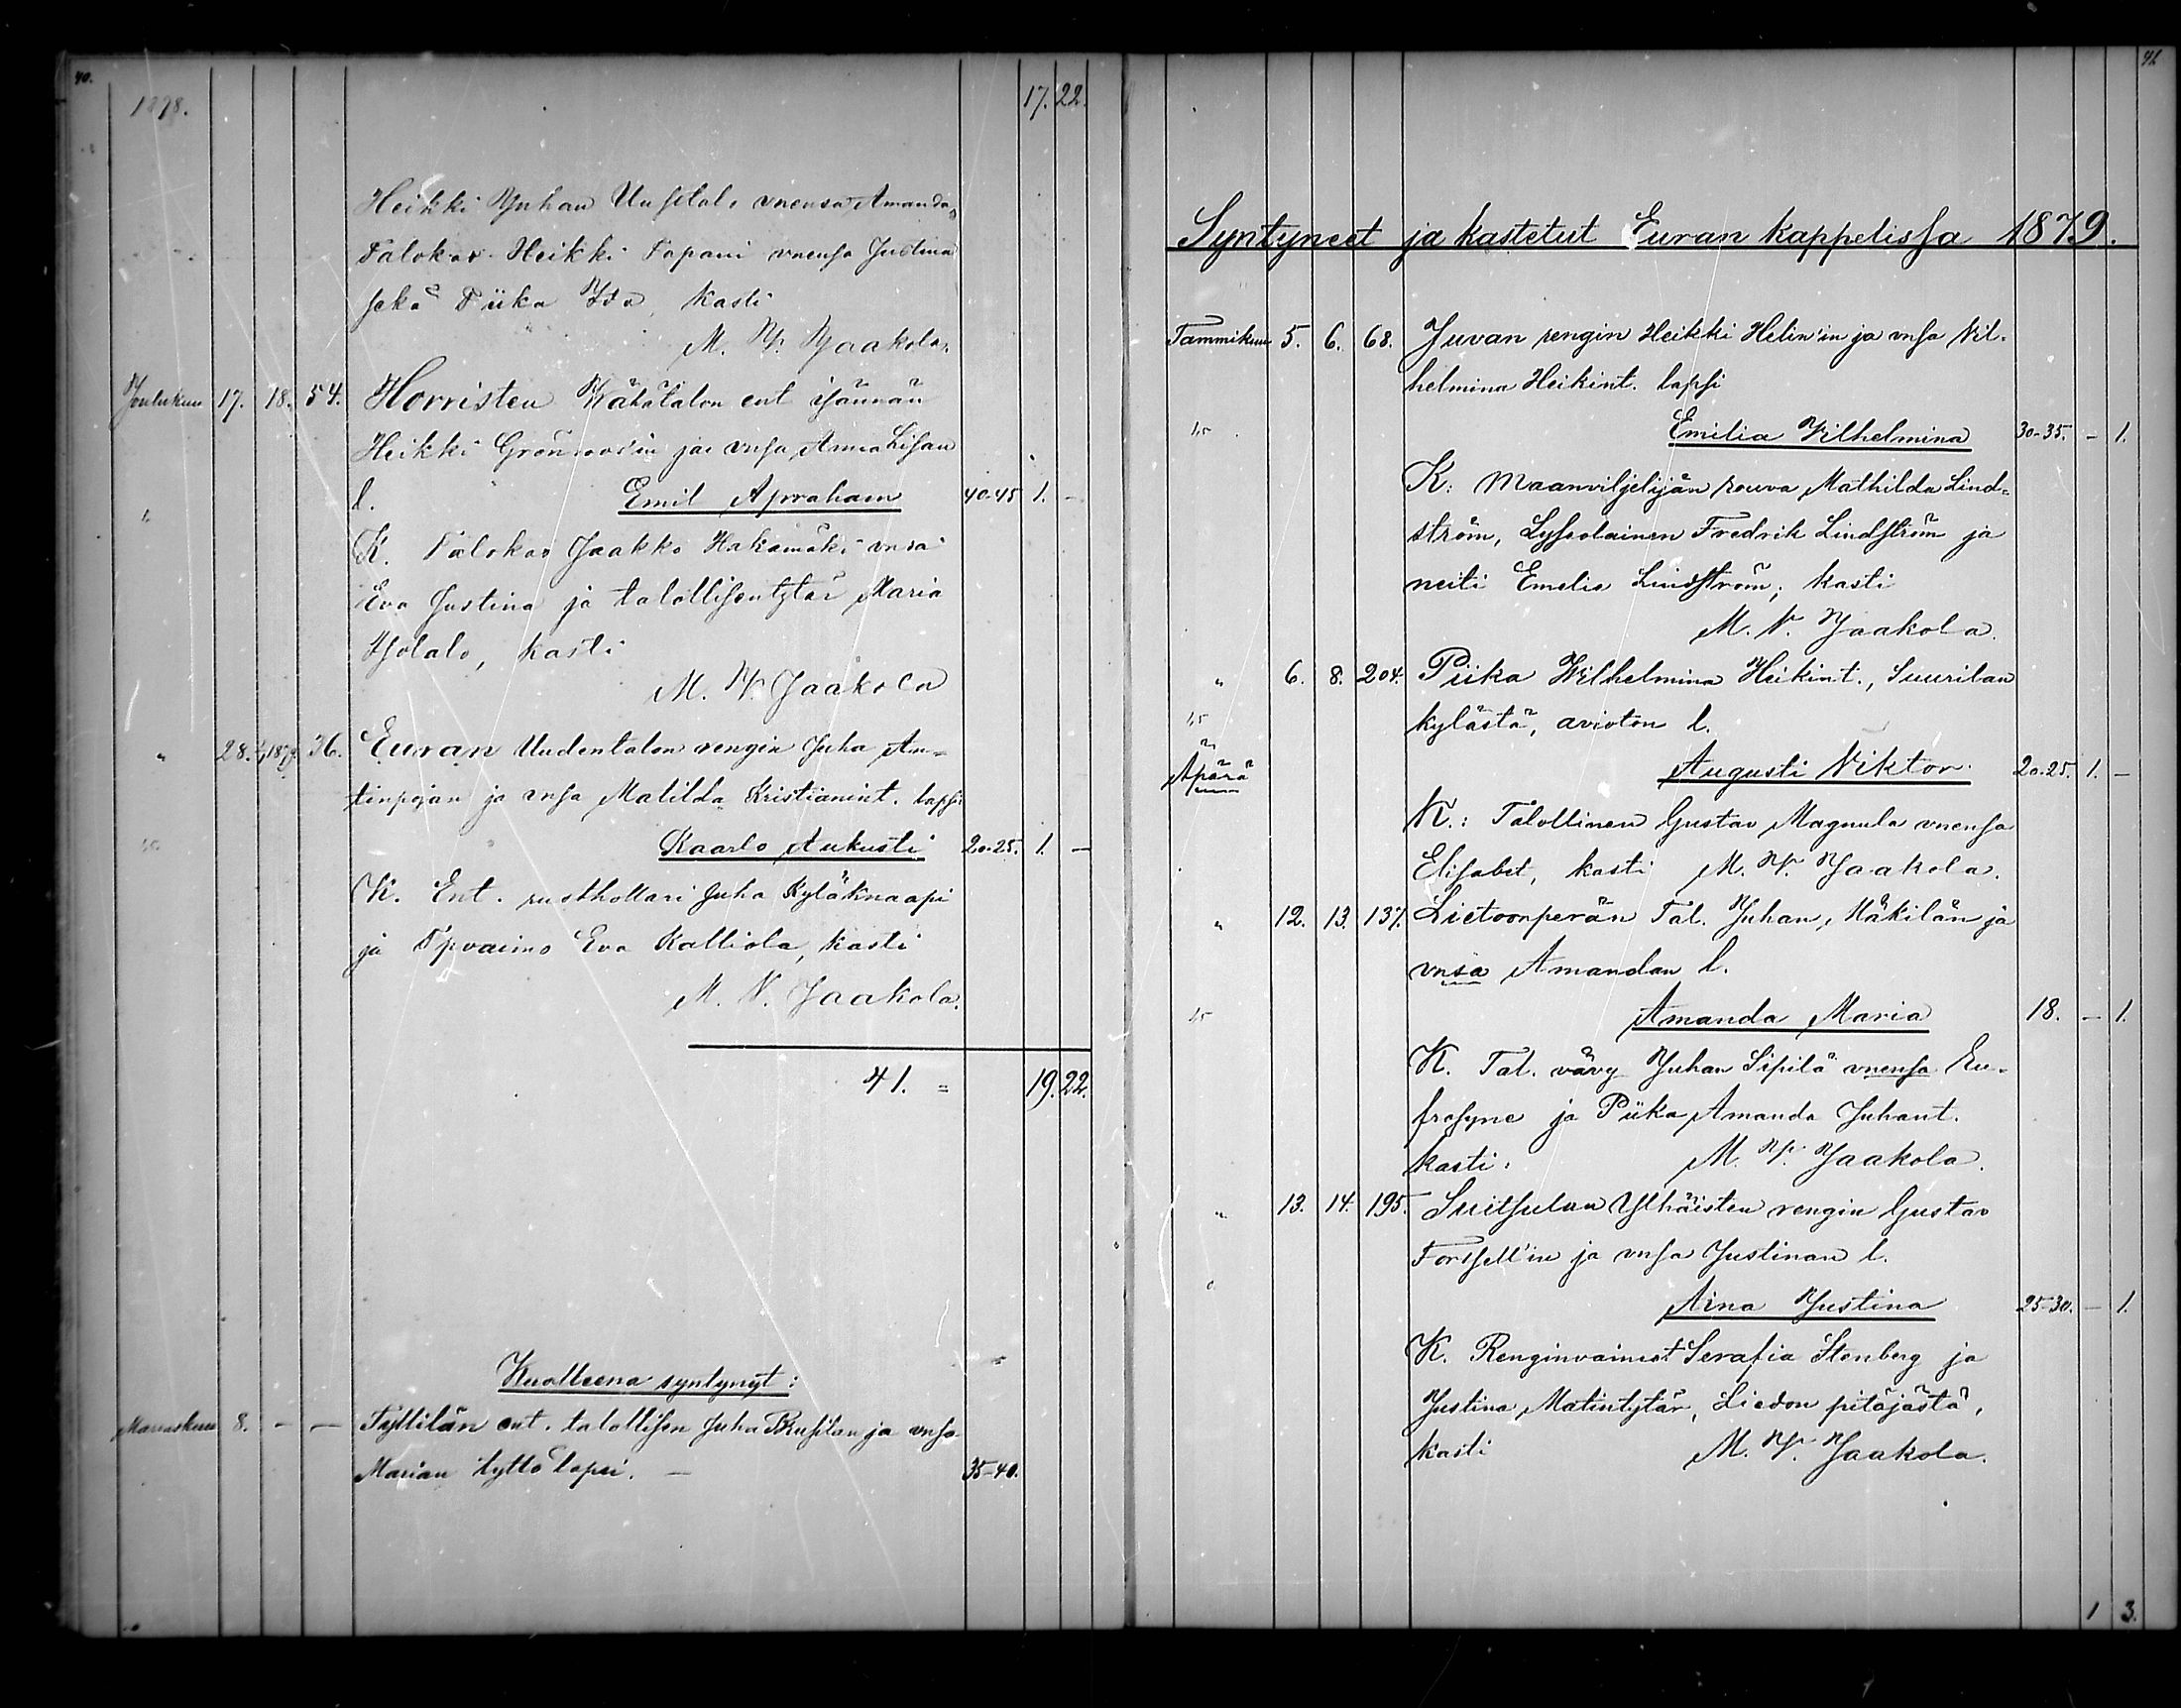 40.
1878. 17. 22.
Heikki Juhan Uusitalo vnensa Amanda,
Talokas Heikki Tapani vnensa Justina
sekä Piika Ida, kasti
M. V. Jaakola.
Joulukuu 17. 18. 54. Horristen Wähätalon ent isännän
Heikki Grönroos'in ja vnsa Anna Lisan
l. Emil Aprraham 40-45 1. -
K. Talokas Jaakko Hakamäki vnsa
Eva Justina ja talollisentytär Maria
Isotalo, kasti
M. V. Jaakola
" 28. 36. Euran Uudentalon rengin Juha An-
tinpojan ja vnsa Matilda Kristianint. lapsi
Kaarlo Aukusti 20-25. 1. -
K. Ent. rusthollari Juha Kyläknaapi
ja Tpvaimo Eva Kalliola, kasti
M. V. Jaakola.
41. = 19. 22.
Kuolleena syntynyt:
Marraskuu 8. - - Tyllilän ent. talollisen Juha Rusilan ja vnsa
Marian tyttö lapsi. - 35-40.
41.
Syntyneet ja kastetut Euran kappelissa 1879.
Tammikuu 5. 6. 68. Juvan rengin Heikki Helin'in ja vnsa Vil-
helmina Heikint. lapsi
Emilia Vilhelmina 30-35. - 1.
K: Maanviljelijän rouva Mathilda Lind-
ström, Lyseolainen Fredrik Lindström ja
neiti Emelie Lindström; kasti
M. V. Jaakola.
" 6. 8. 204. Piika Wilhelmina Heikint., Suurilan
kylästä, avioton l.
Äpärä Augusti Viktor. 20-25. 1. -
K.: Talollinen Gustav Magnula vnensa
Elisabet, kasti M. V. Jaakola.
" 12. 13. 137. Lietoonperän Tal. Juhan, Mäkilän ja
vnsa Amandan l.
Amanda Maria 18. - 1.
K. Tal. vävy Juhan Sipilä vnensa Eu-
frosyne ja Piika Amanda Juhant.
kasti: M. V. Jaakola.
" 13. 14. 195. Suitsulan Ylhäisten rengin Gustav
Forssell'in ja vnsa Justinan l.
Aina Justina 25-30. - 1.
K. Renginvaimot Serafia Stenberg ja
Justina Matintytär, Liedon pitäjästä,
kasti M. V. Jaakola.
1 3.